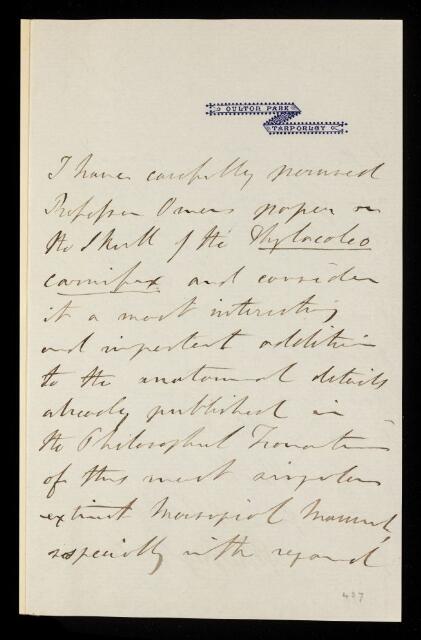 OULTON PARK
TARPORLEY
I have carefully perused
Professor Owens paper on
the Skull of the Thylacoleo
carnifex and consider
it a most interesting
and important addition
to the anatomical details
already published in
the Philosophical Transactions
of this most singular
extinct Marsupial Mammal,
especially with regard
437